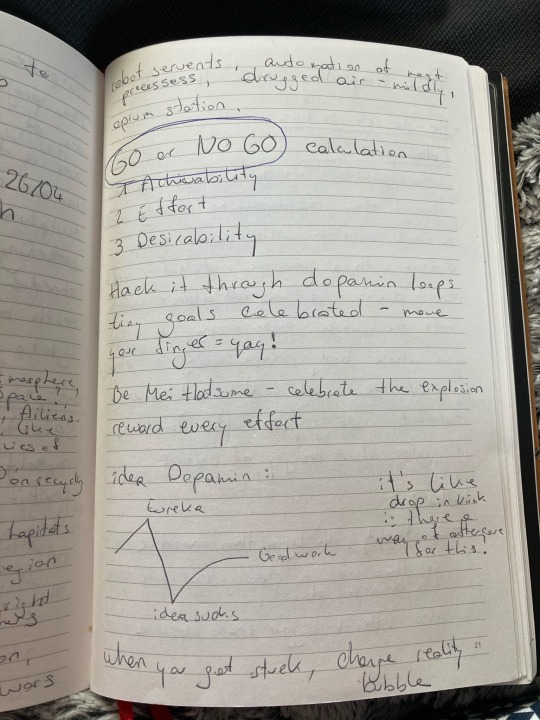 to
26/04
h
mosphere,
space,
, Ailiens.
like
of
on recycly
hapitats
egian
right
on,
wors
robot servents, automation of most
processess, drugged air - mildly,
opium station.
GO or NO GO calculation
1 Achivability
2 Effort
3 Desirability
Hack it through dopamin loops
tiny goals celebrated - move
your finger = yay!
Be Mei Hatsume - celebrate the explosion
reward every effort
idea Dopamin :
Eureka
Good work
idea sucks
it's like
drop in kink
is there a
way of aftercare
for this.
when you get stuck, change reality
bubble